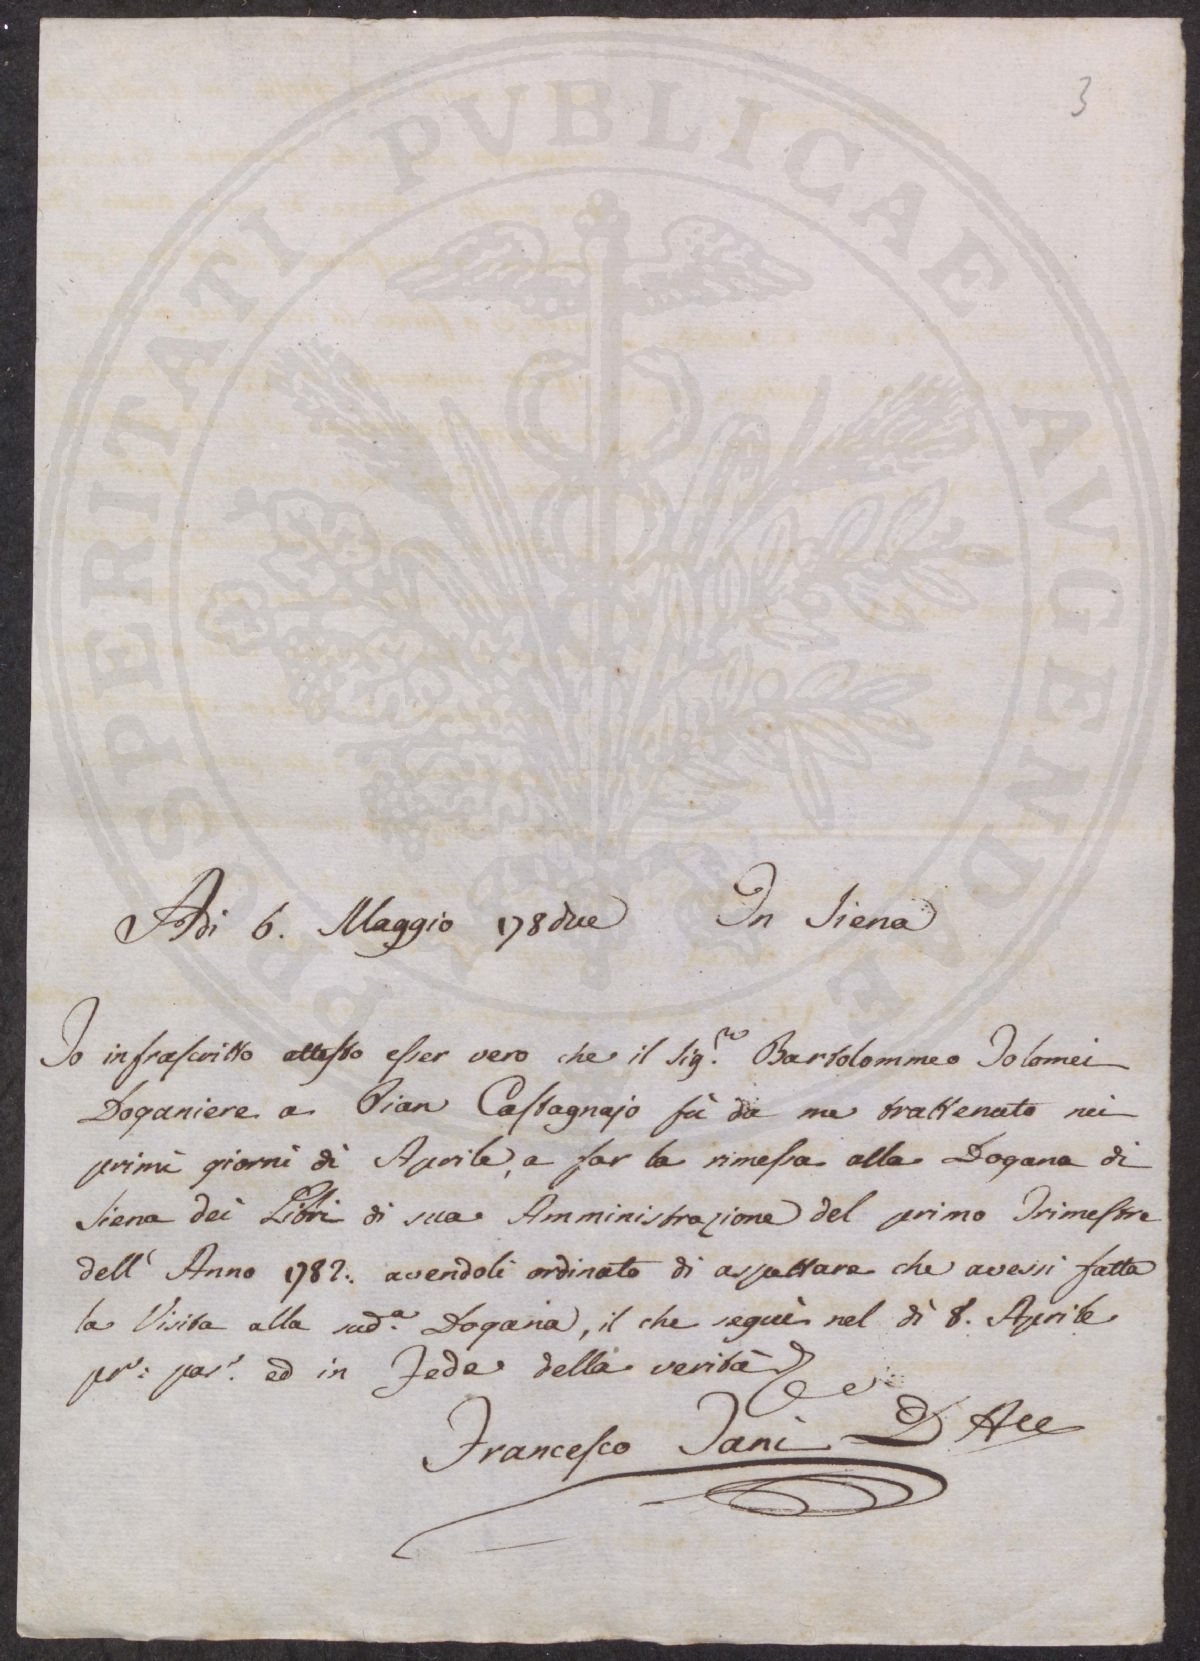 3
Adi 6. Maggio 178due In Siena
Io infrascritto attesto esser vero che il Sig.re Bartolommeo Tolomei
Doganiere a Pian Castagnajo fù da me trattenuto nei
primi giorni di Aprile, a far la rimessa alla Dogana di
Siena dei Libri di sua Amministrazione del primo Trimestre
dell' Anno 1782. avendoli ordinato di aspettare che avessi fatta
la Visita alla sud.a Dogana, il che seguì nel dì 8. Aprile
pr: pas: ed in Fede della verità
Francesco Tani
PROSPERITATI PVBLICAE AVGENDAE